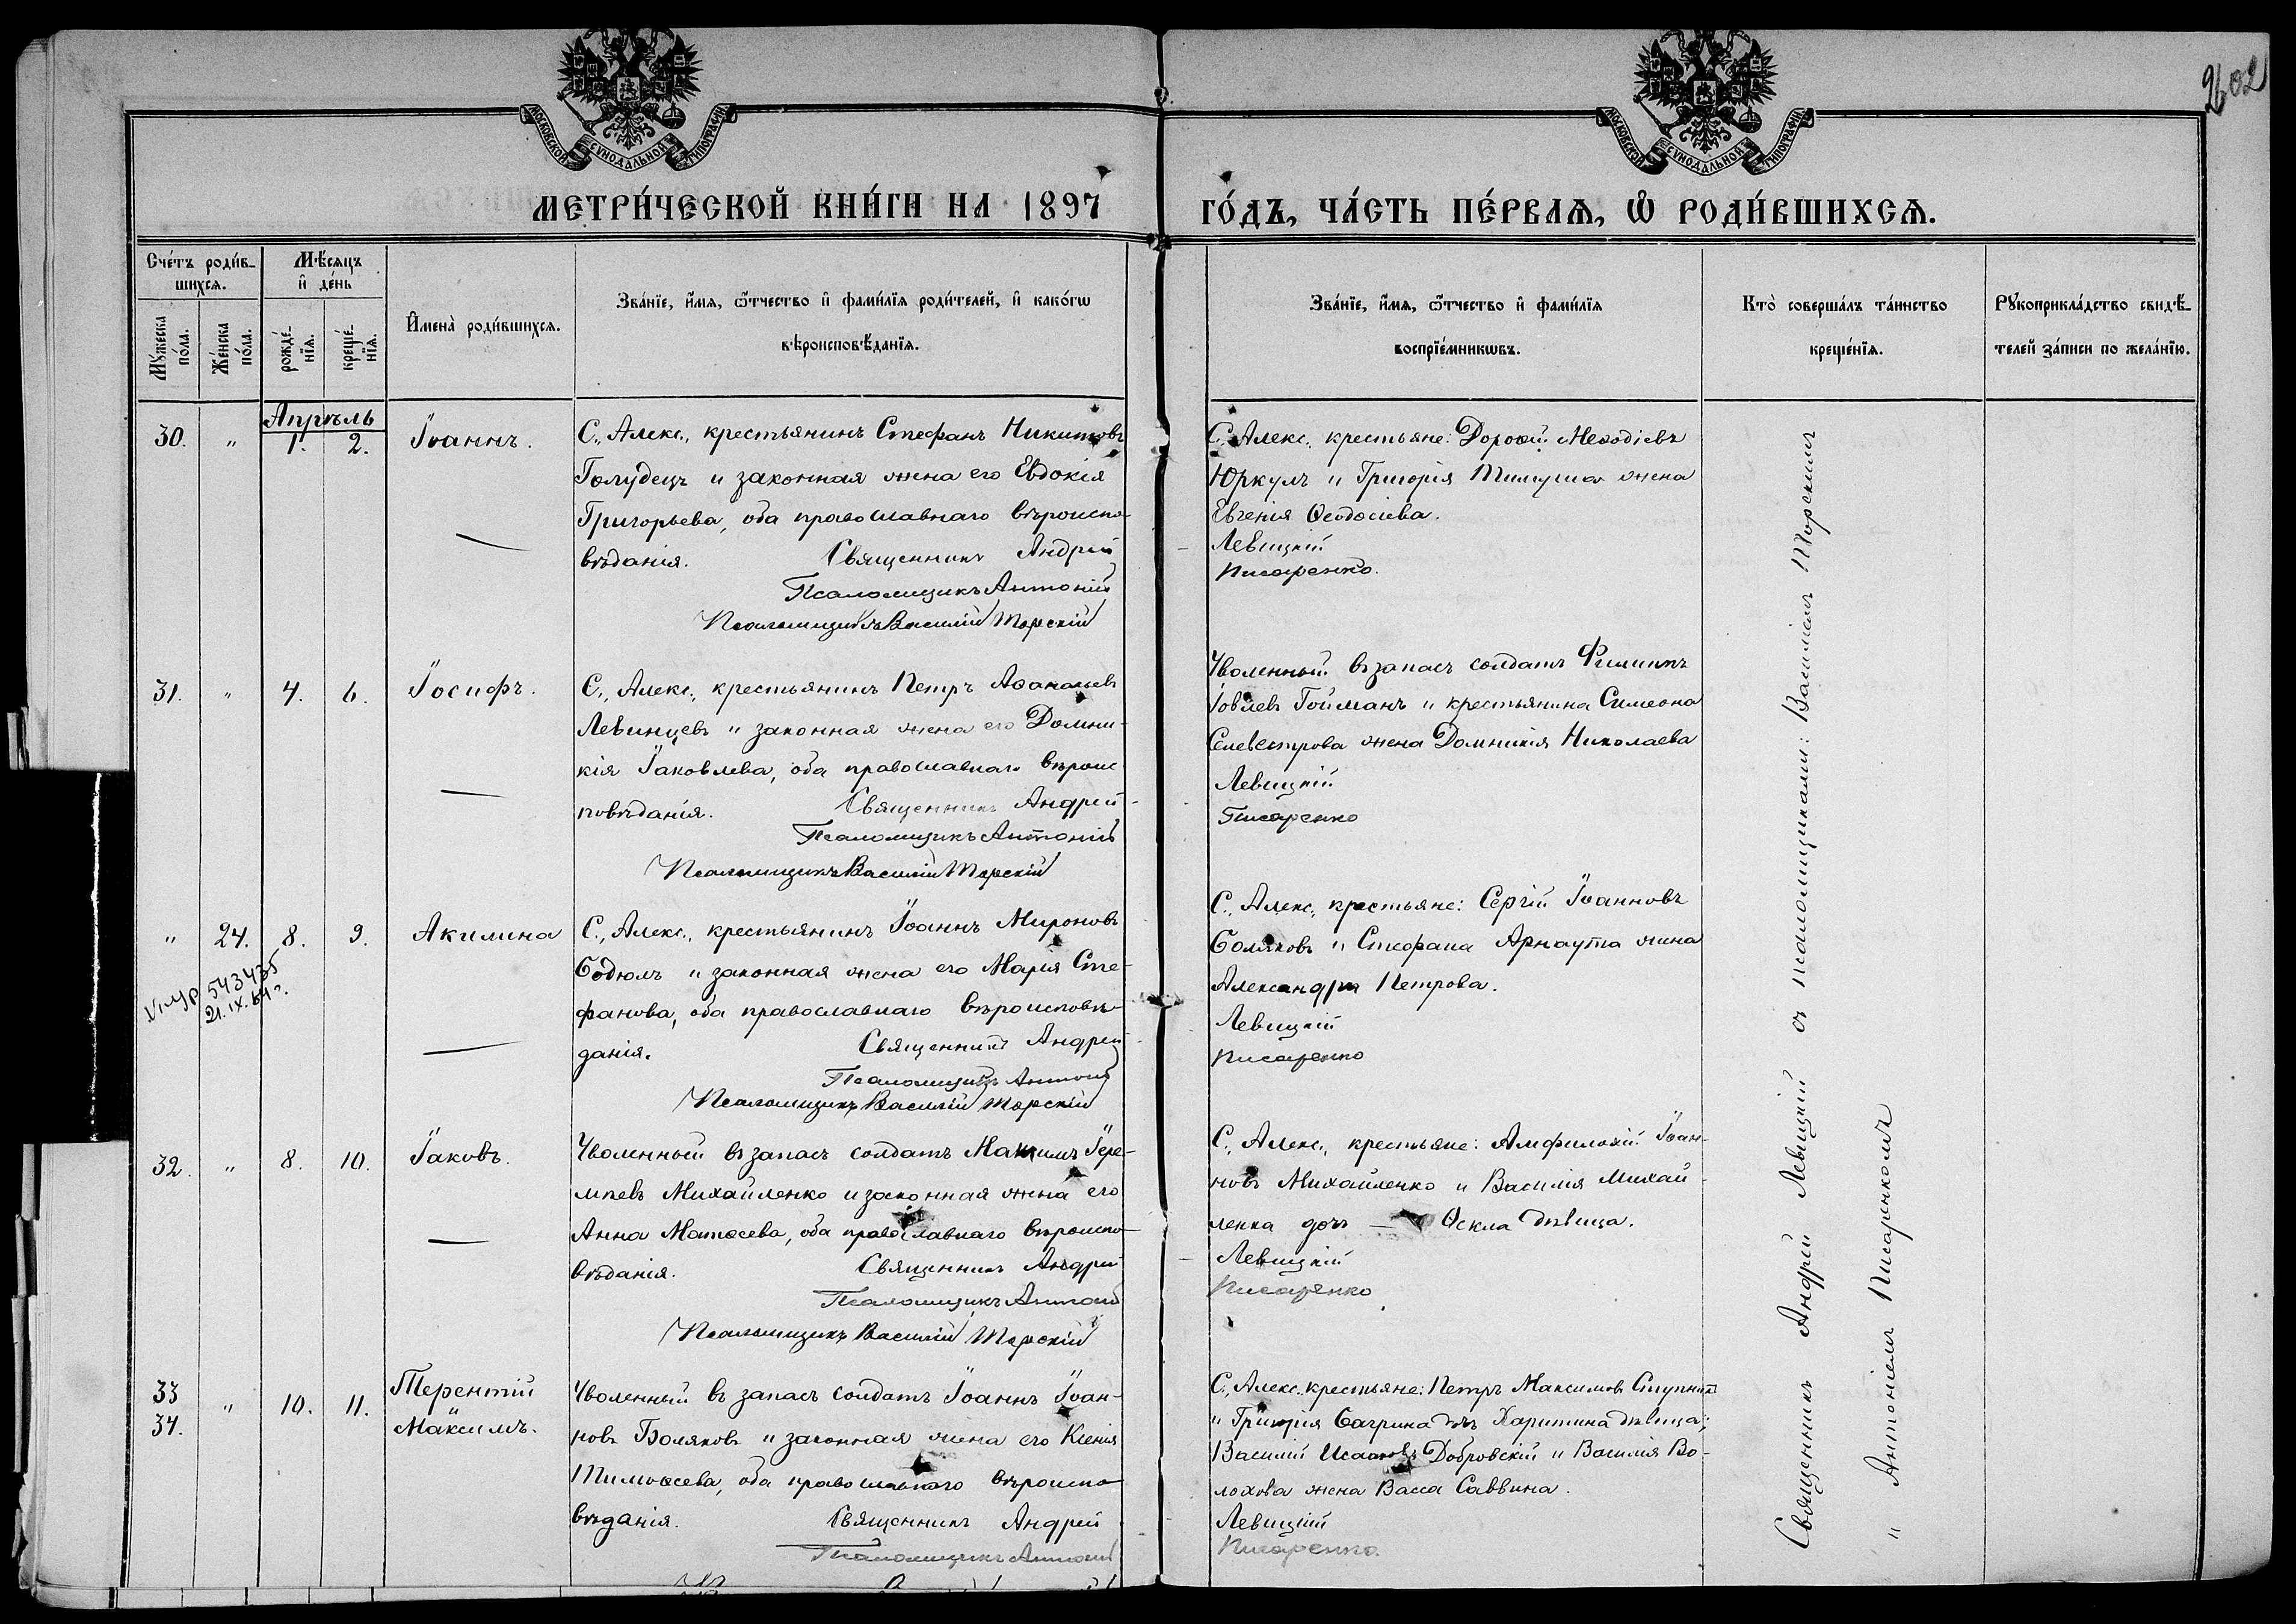 202
МОСКОВСКОЙ СУНОДАЛЬНОЙ ТИПОГРАФІИ
МОСКОВСКОЙ СУНОДАЛЬНОЙ ТИПОГРАФІИ
МЕТРИ́ЧЕСКОЙ КНИ́ГИ НА 1897
ГО́ДЪ, ЧА́СТЬ ПЕ́РВАѦ, Ѡ҆ РОДИ́ВШИХСѦ.
Сче́тъ роди́в-
шихсѧ.
Мꙋ́жеска
по́ла.
Же́нска
по́ла.
Мѣ́сѧцъ
и҆ де́нь
рожде́-
нїѧ.
креще́-
нїѧ.
И҆мена̀ роди́вшихсѧ.
Зва́нїе, и҆́мѧ, ѻ҆́тчество и҆ фами́лїѧ роди́телей, и҆ како́гѡ
вѣроисповѣ́данїѧ.
Зва́нїе, и҆́мѧ, ѻ҆́тчество и҆ фами́лїѧ
воспрїе́мникѡвъ.
Кто̀ соверша́лъ та́инство
креще́нїѧ.
Рꙋкоприкла́дство свидѣ́-
телей за́писи по жела́нїю.
Апрѣль
30. " 1. 2. Іоаннъ.
С., Алекс., крестьянинъ Стефанъ Никитовъ
Голудецъ и законная жена его Евдокія
Григорьева, оба православнаго вѣроиспо-
вѣданія. Священникъ Андрей
Псаломщикъ Антоній
Псаломщикъ Василій Торскій
С. Алекс. крестьяне: Дороѳей Меѳодіевъ
Юркулъ и Григорія жена
Евгенія Ѳеодосіева.
Левицкій
Писаренко.
31. " 4. 6. Іосифъ.
С., Алекс., крестьянинъ Петръ Аѳанасьевъ
Левинцевъ и законная жена его Домни-
кія Іаковлева, оба православнаго вѣроис
повѣданія. Священникъ Андрей
Псаломщикъ Антоній
Псаломщикъ Василій Торскій
Уволенный въ запасъ солдатъ Филиппъ
Іовлевъ Гойманъ и крестьянина Симеона
Селевестрова жена Домникія Николаева
Левицкій
Писаренко
" 24. 8. 9. Акилина
543435
21.IX.64г.
С., Алекс., крестьянинъ Іоаннъ Мироновъ
Бодюлъ и законная жена его Марія Сте-
фанова, оба православнаго вѣроисповѣ-
данія. Священникъ Андрей
Псаломщикъ Антоній
Псаломщикъ Василій Торскій
С., Алекс., крестьяне: Сергій Іоанновъ
Боляковъ и Стефана Арнаута жена
Александра Петрова.
Левицкій
Писаренко
32. " 8. 10. Іаковъ.
Уволенный въ запасъ солдатъ Максимъ Іере-
міевъ Михайленко и законная жена его
Анна Матѳеева, оба православнаго вѣроиспо-
вѣданія. Священникъ Андрей
Псаломщикъ Антоній
Псаломщикъ Василій Торскій
С., Алекс., крестьяне: Амфилохій Іоан-
новъ Михайленко и Василія Михай-
ленка дочь — Ѳекла дѣвица.
Левицкій
Писаренко
33 " 10. 11. Терентій
34. Максимъ.
Уволенный въ запасъ солдатъ Іоаннъ Іоан-
новъ Боляковъ и законная жена его Ксенія
Тимоѳеева, оба православнаго вѣроиспо-
вѣданія. Священникъ Андрей
Псаломщикъ Антоній
С., Алекс. крестьяне: Петръ Максимовъ Ступникъ
и Григорія Багрина дочь Харитина дѣвица;
Василій Исааковъ Добровскій и Василія Во-
лохова жена Васса Саввина.
Левицкій
Писаренко.
Священникъ Андрей Левицкій съ псаломщиками: Василіемъ Торскимъ
и Антоніемъ Писаренкомъ